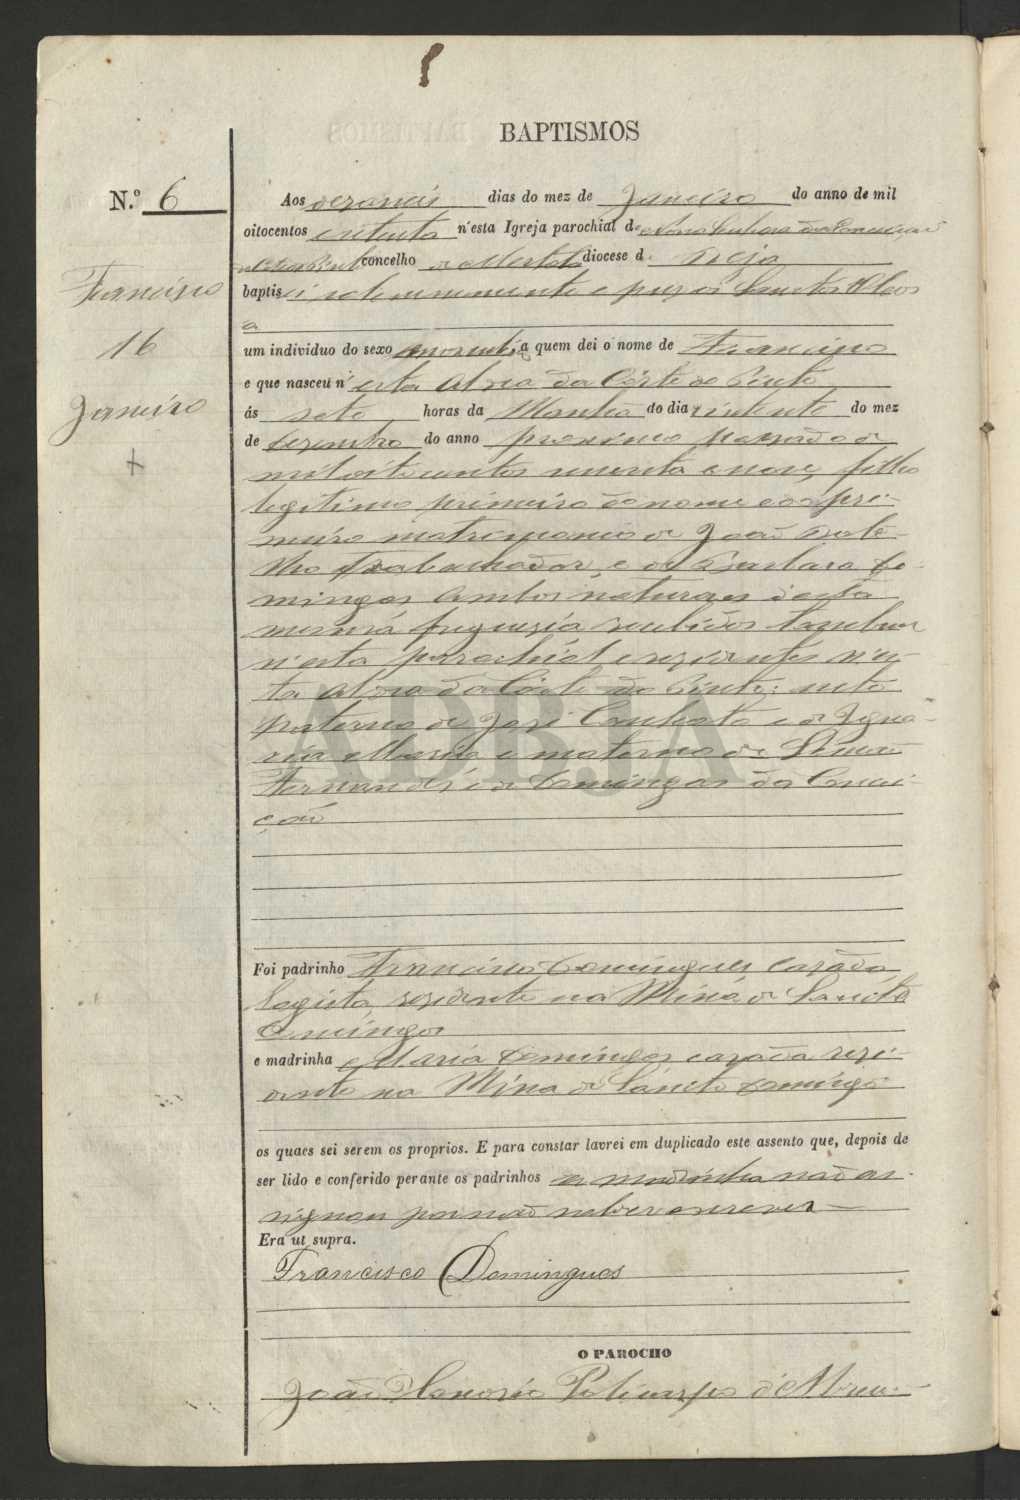 BAPTISMOS
N.º 6
Francisco
16
Janeiro
+
Aos dezaseis dias do mez de Janeiro do anno de mil
oitocentos e oitenta n'esta Igreja parochial de Nossa Senhora da Conceição
concelho de Mertola diocese de Beja
baptisei solemnemente e puz os Sanctos Oleos
a
um individuo do sexo masculino a quem dei o nome de Francisco
e que nasceu n'esta Aldea da Côrte do Pinto
ás sete horas da Manhã do dia vinte do mez
de Dezembro do anno proximo passado de
mil oitocentos setenta e nove, filho
legitimo primeiro do nome e do pri-
meiro matrimonio de João Bote-
lho trabalhador, e de Barbara Do-
mingas ambos naturaes d'esta
mesma freguezia recebidos tambem
n'esta parochial e rezidentes n'es-
ta Aldea da Côrte do Pinto: neto
paterno de José Candeto e de Igna-
cia Maria e materno de Simão
Fernandes e de Domingas da Concei-
ção
Foi padrinho Francisco Domingues cazado
logista, rezidente na Mina de Sancto
Domingos
e madrinha Maria Domingas cazada rezi-
dente na Mina de Sancto Domingos
os quaes sei serem os proprios. E para constar lavrei em duplicado este assento que, depois de
ser lido e conferido perante os padrinhos a madrinha não as-
signou por não saber escrever
Era ut supra.
Francisco Domingues
O PAROCHO
João Honorio Policarpo d'Abreu
ADBJA